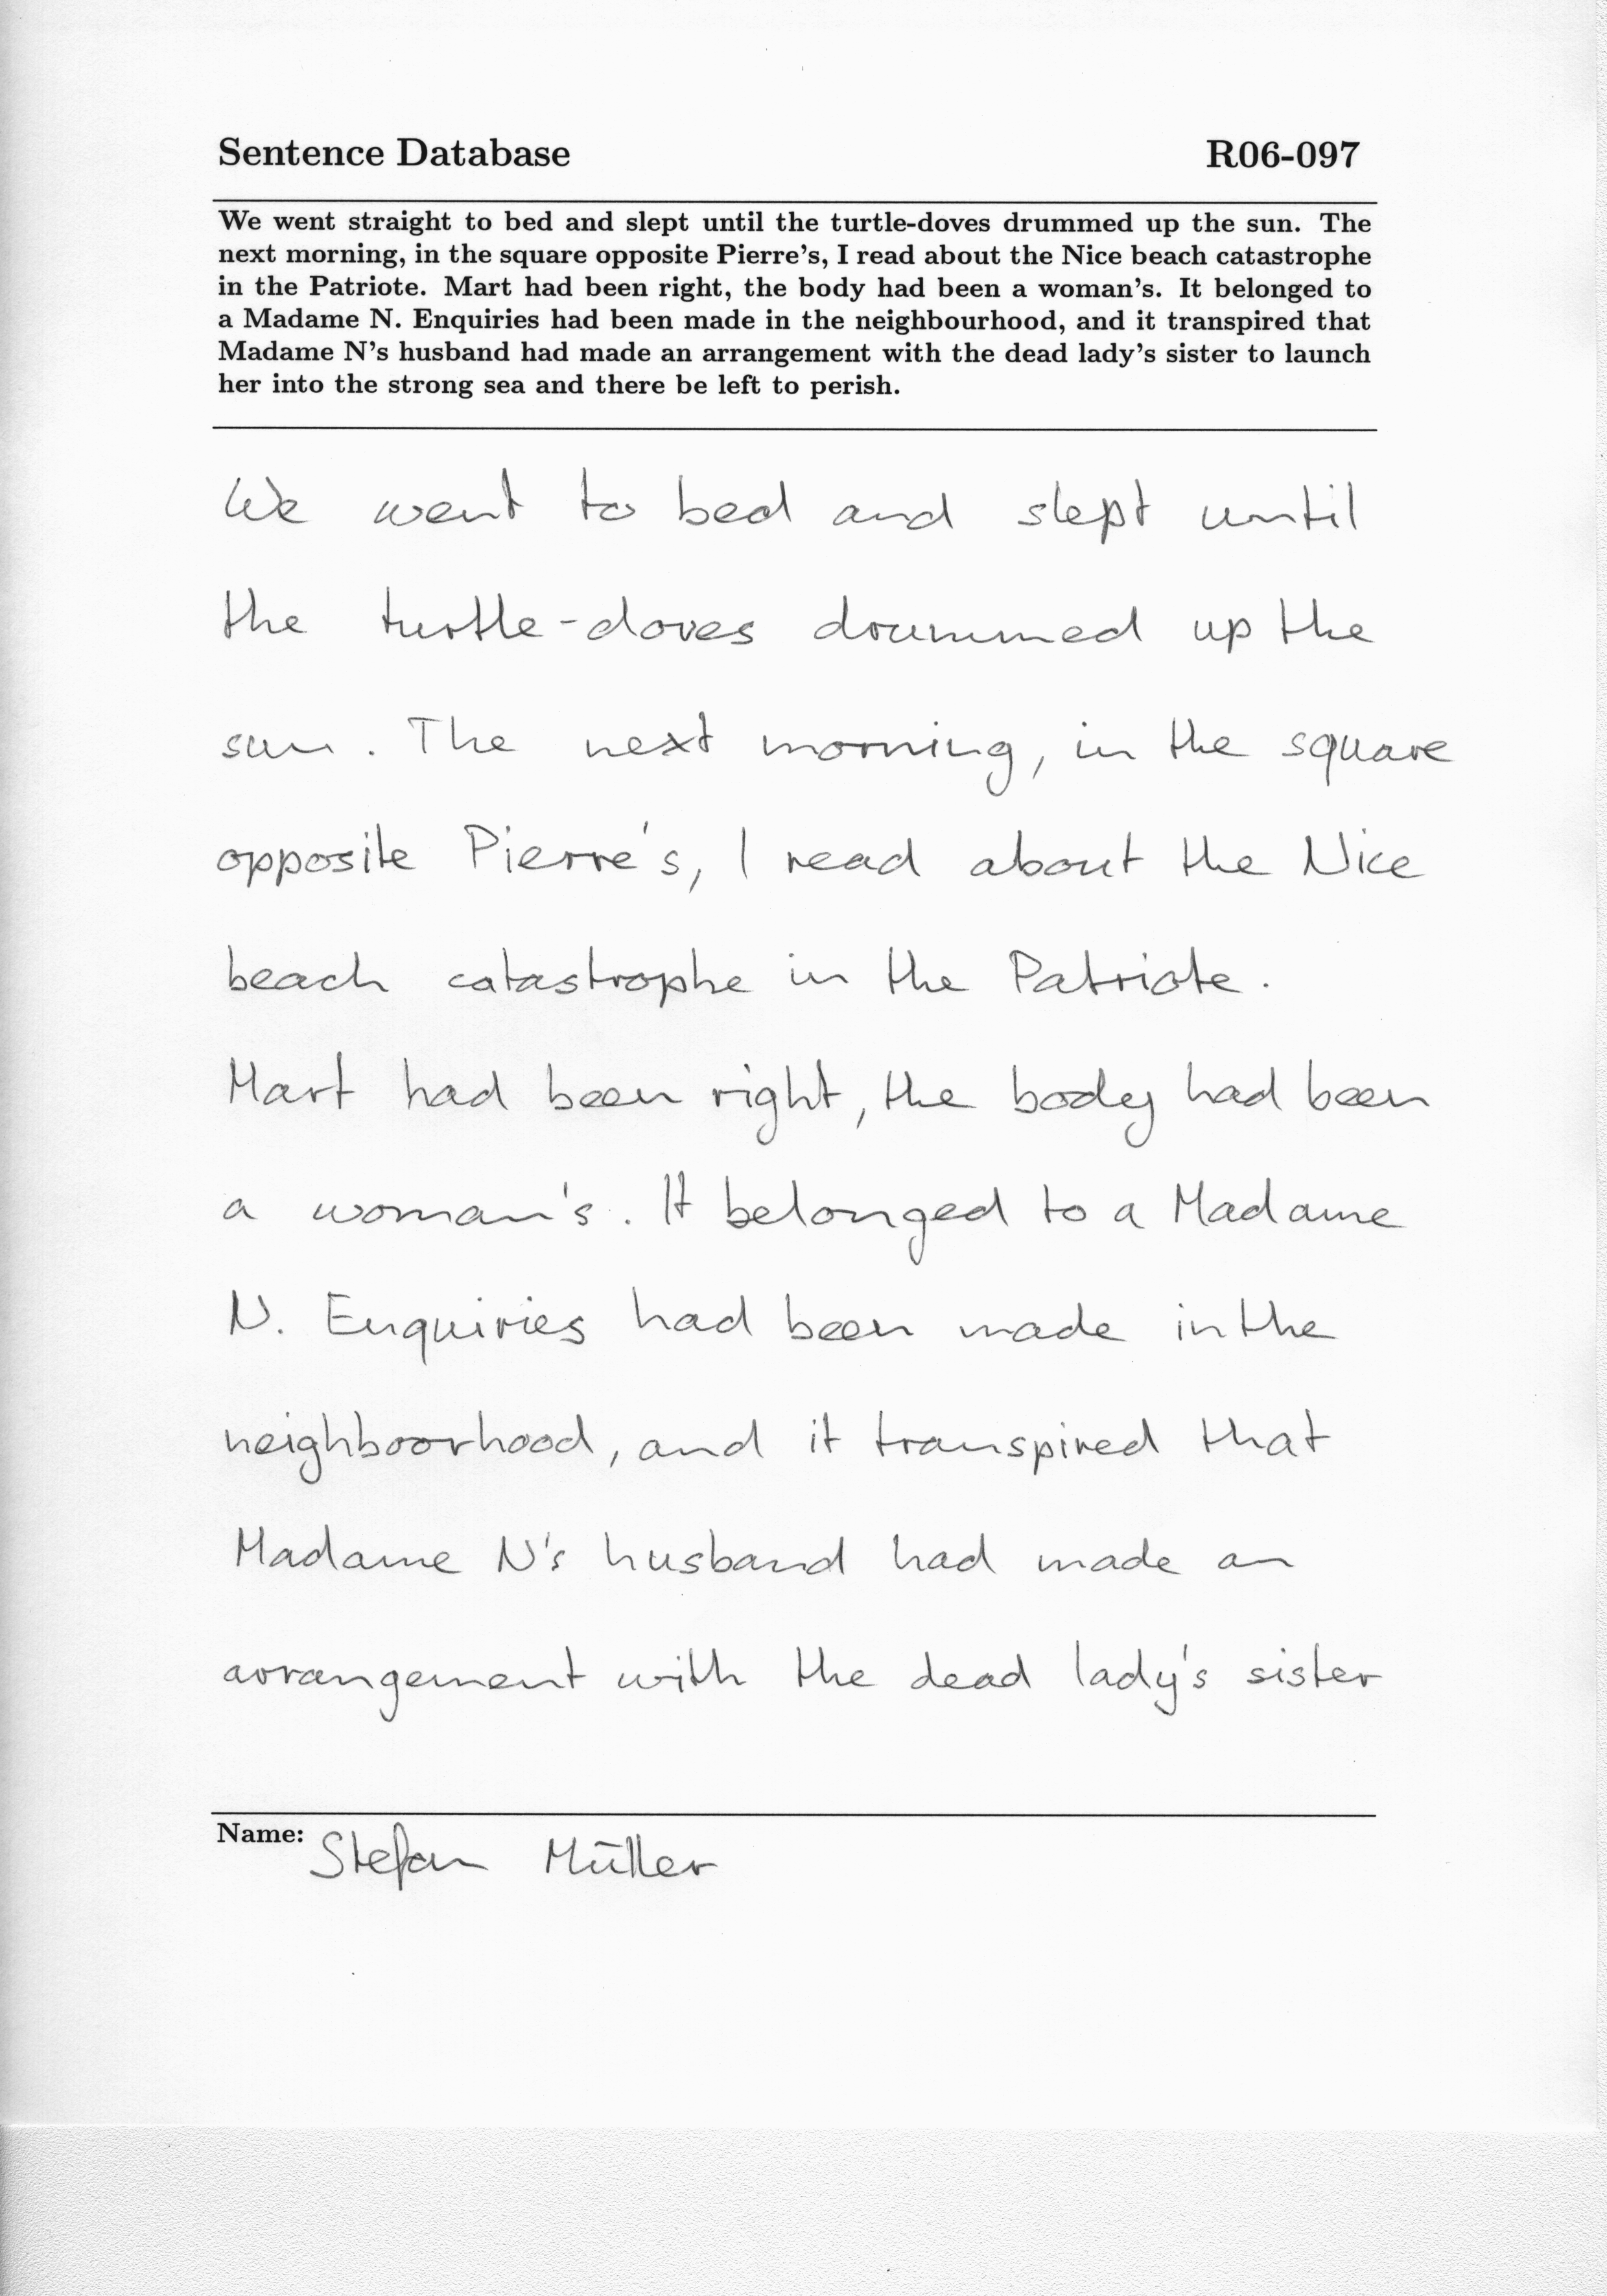 Sentence Database R06-097
We went straight to bed and slept until the turtle-doves drummed up the sun. The
next morning, in the square opposite Pierre's, I read about the Nice beach catastrophe
in the Patriote. Mart had been right, the body had been a woman's. It belonged to
a Madame N. Enquiries had been made in the neighbourhood, and it transpired that
Madame N's husband had made an arrangement with the dead lady's sister to launch
her into the strong sea and there be left to perish.
We went to bed and slept until
the turtle-doves drummed up the
sun. The next morning, in the square
opposite Pierre's, I read about the Nice
beach catastrophe in the Patriote.
Mart had been right, the body had been
a woman's. It belonged to a Madame
N. Enquiries had been made in the
neighboorhood, and it transpired that
Madame N's husband had made an
arrangement with the dead lady's sister
Name: Stefan Müller